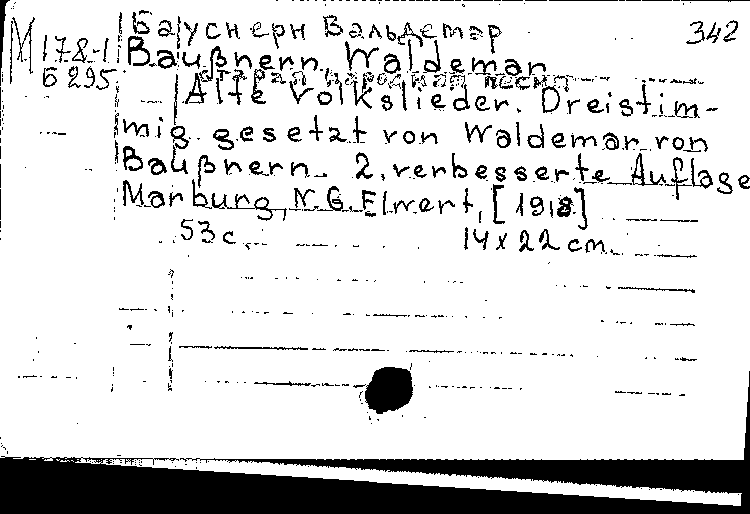 Бауснерн Вальдемар 342
М 178-1 Baußnern, Waldemar
Б 295 старая народная песня
Alte Volkslieder. Dreistim-
mig gesetzt von Waldemar von
Baußnern. 2. verbesserte Auflage
Marburg, N. G. Elwert, [1918]
53 с. 14 x 22 cm.